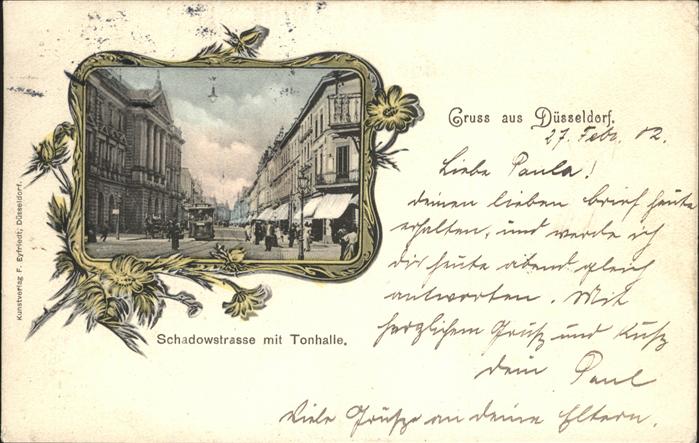 Gruss aus Düsseldorf.
27. Febr. 02.
Liebe Paula!
deinen lieben brief heute
erhalten, und werde ich
dir heute abend gleich
antworten. Mit
herzlichem Gruß und Kuß
dein Paul
Viele Grüße an deine Eltern.
Schadowstrasse mit Tonhalle.
Kunstverlag F. Eyfriedt; Düsseldorf.